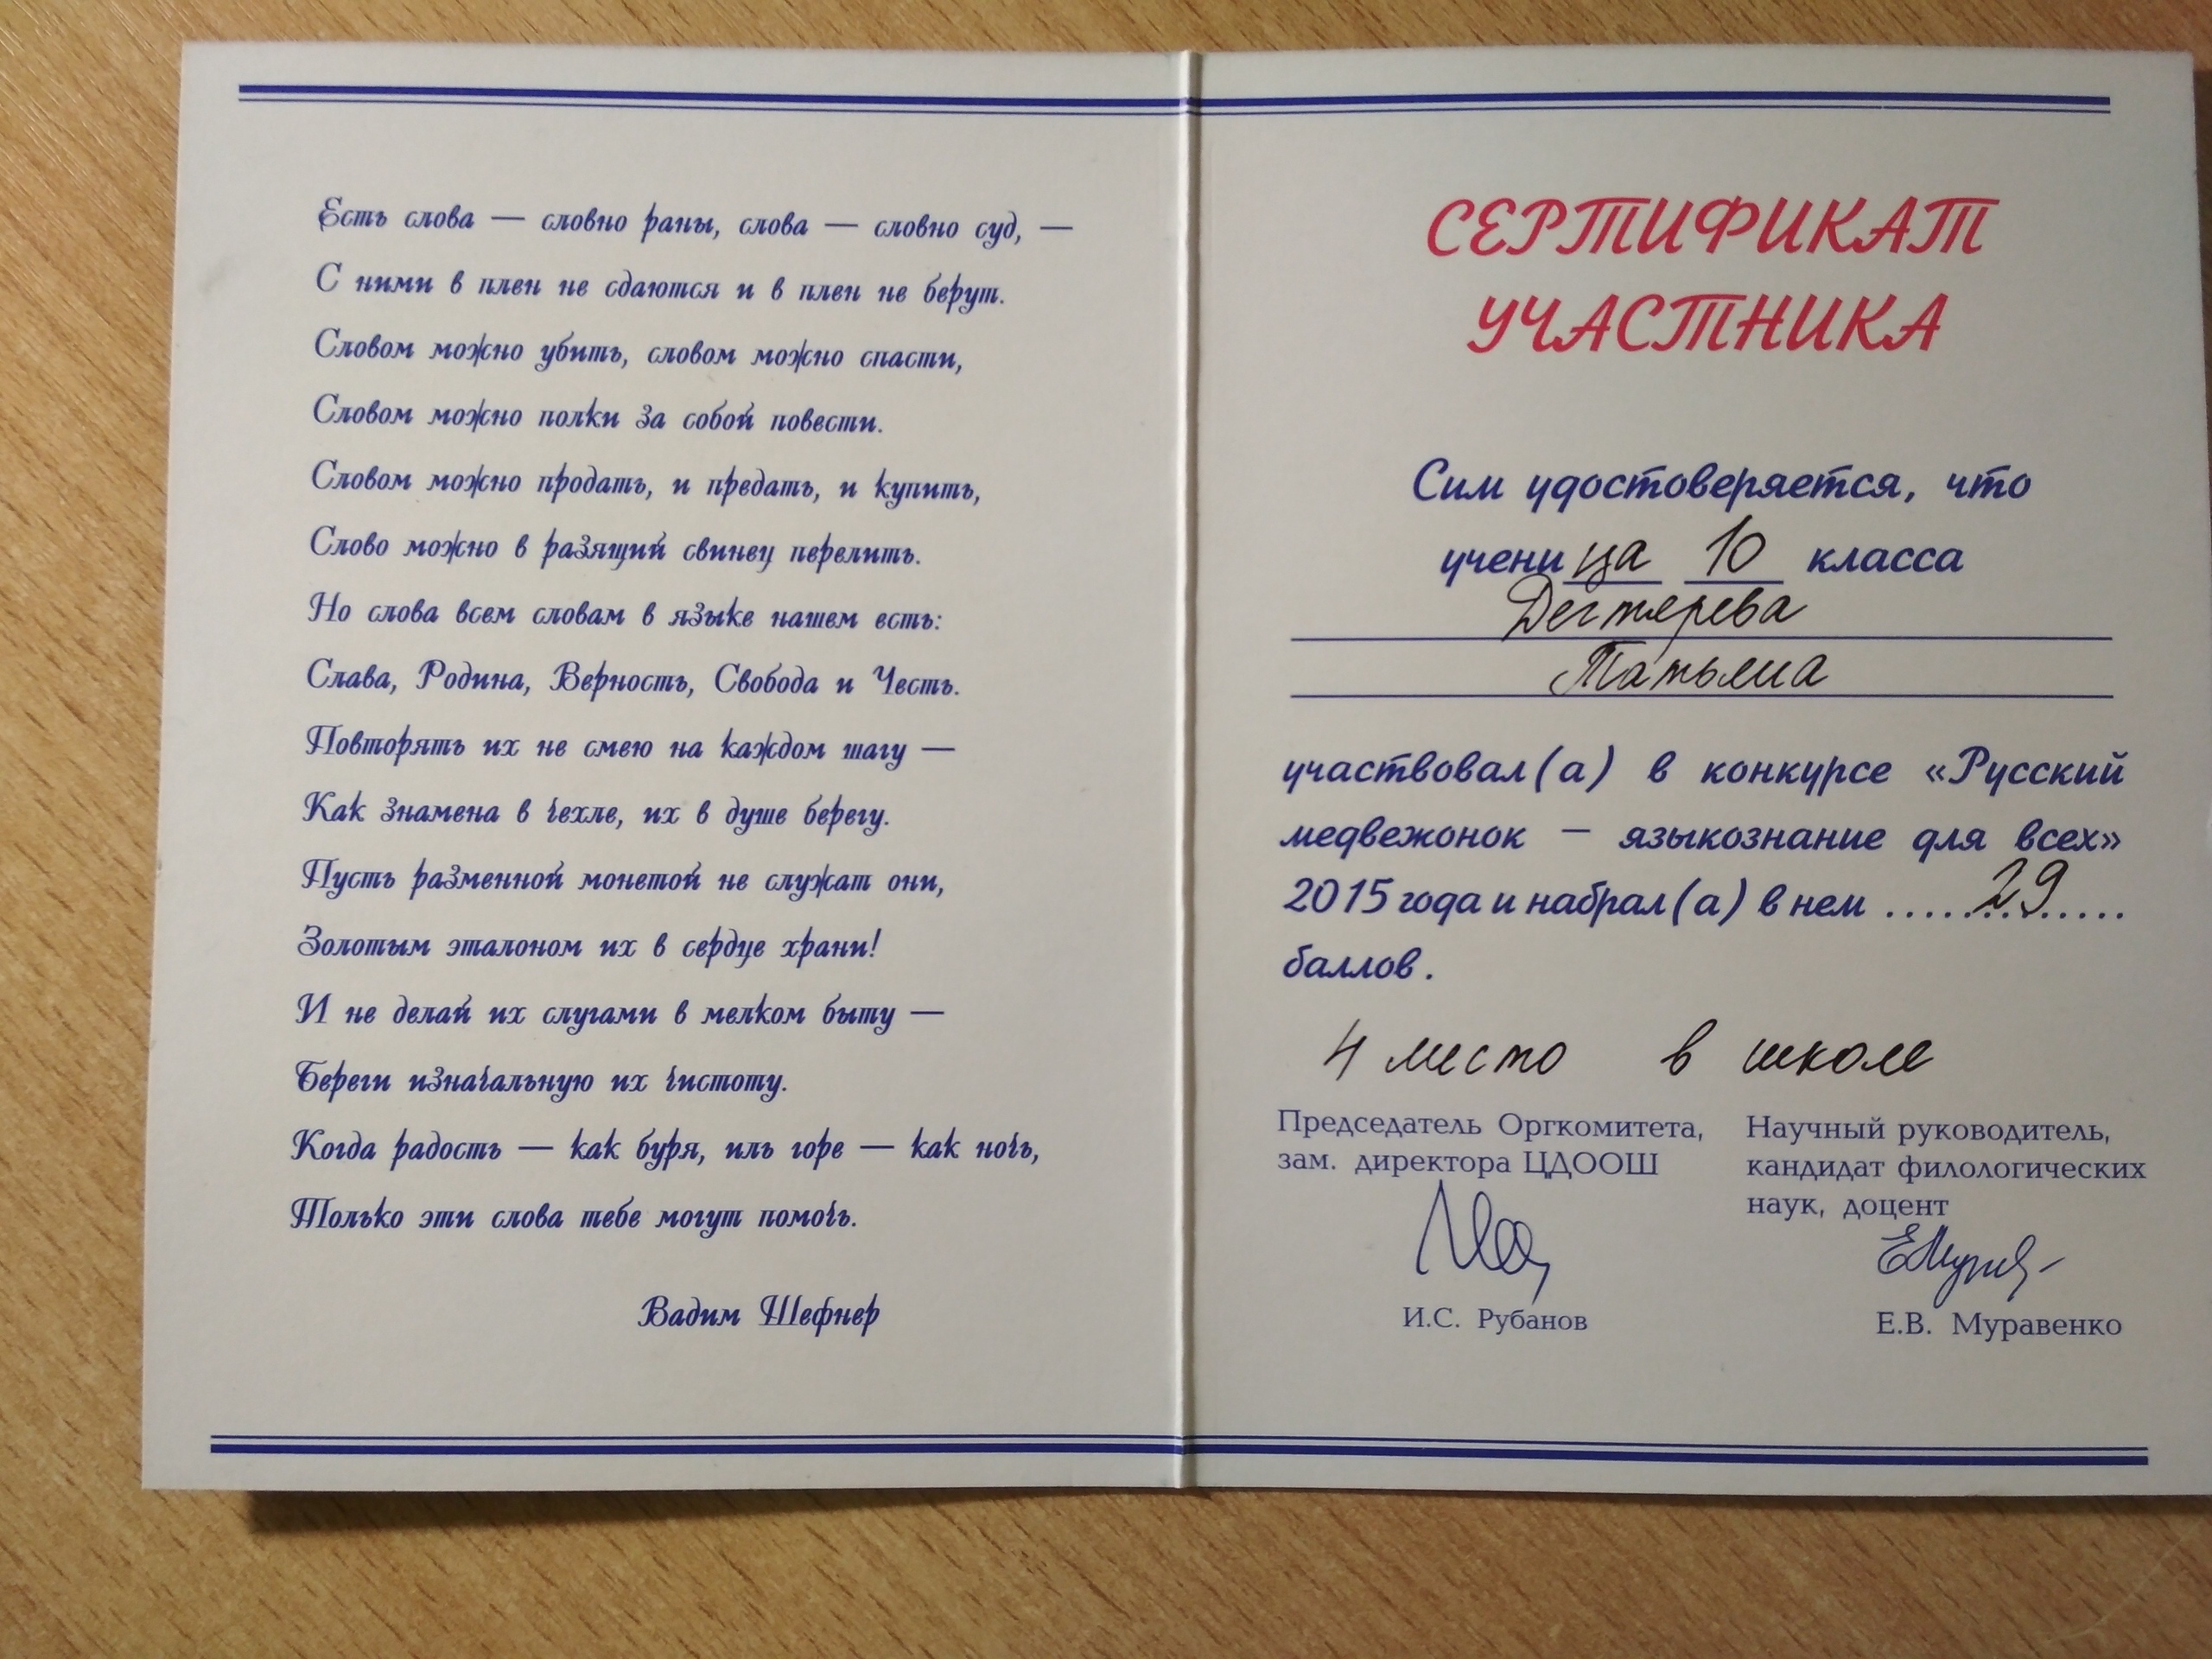 Есть слова — словно раны, слова — словно суд, —
С ними в плен не сдаются и в плен не берут.
Словом можно убить, словом можно спасти,
Словом можно полки за собой повести.
Словом можно продать, и предать, и купить,
Слово можно в разящий свинец перелить.
Но слова всем словам в языке нашем есть:
Слава, Родина, Верность, Свобода и Честь.
Повторять их не смею на каждом шагу —
Как знамена в чехле, их в душе берегу.
Пусть разменной монетой не служат они,
Золотым эталоном их в сердце храни!
И не делай их слугами в мелком быту —
Береги изначальную их чистоту.
Когда радость — как буря, иль горе — как ночь,
Только эти слова тебе могут помочь.
Вадим Шефнер
СЕРТИФИКАТ
УЧАСТНИКА
Сим удостоверяется, что
ученица 10 класса
Дегтерева
Татьяна
участвовал(а) в конкурсе «Русский
медвежонок — языкознание для всех»
2015 года и набрал(а) в нем ..... 29 .....
баллов.
4 место в школе
Председатель Оргкомитета,
зам. директора ЦДООШ
И.С. Рубанов
Научный руководитель,
кандидат филологических
наук, доцент
Е.В. Муравенко